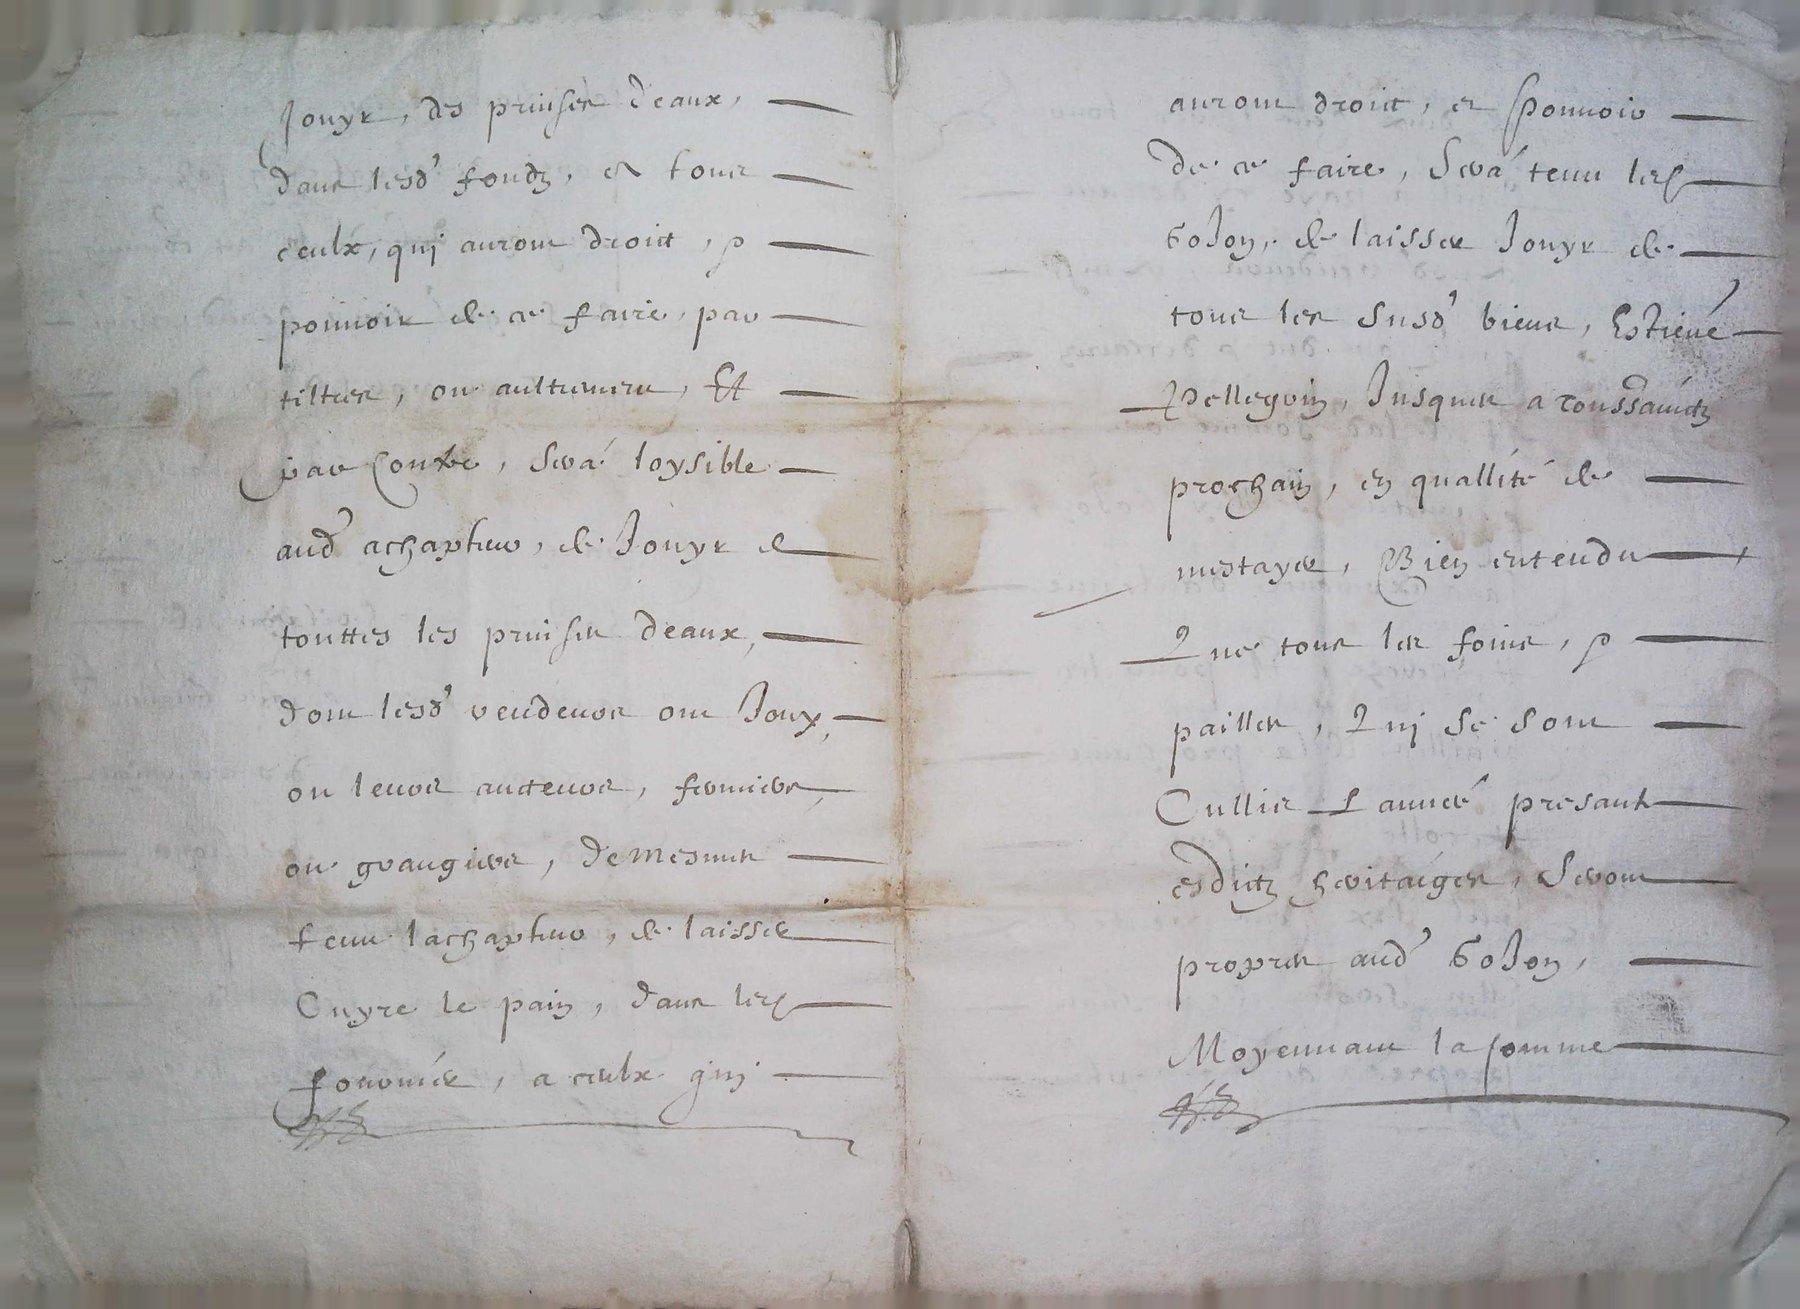 Jouyr, des prinses deaux,
dans lesd' fondz, et tous
ceulx, qui auront droict, &
pouvoir de ce faire, par
tiltres, ou aultrement, Et
par Contre, sera loysible
aud' achapteur, de Jouyr de
touttes les prinses deaux,
dont lesd' vendeurs ont Jouy,
ou leurs aucteurs, fermiers,
ou grangiers, de mesmes
tenu lachapteur, de laisser
Cuyre le pain, dans les
fournés, a ceulx qui
auront droict, et pouvoir
de ce faire, Sera tenu led
Gojon, de laisser Jouyr de
tous les susd' biens, Estiene
Pellegrin, Jusques a toussainctz
prochain, en quallité de
mestayer, Bien entendu
Que tous les foins, &
pailles, Qui se sont
Cullis L'année presant
esdictz heritaiges, Seront
propres aud' Gojon,
Moyennant la somme